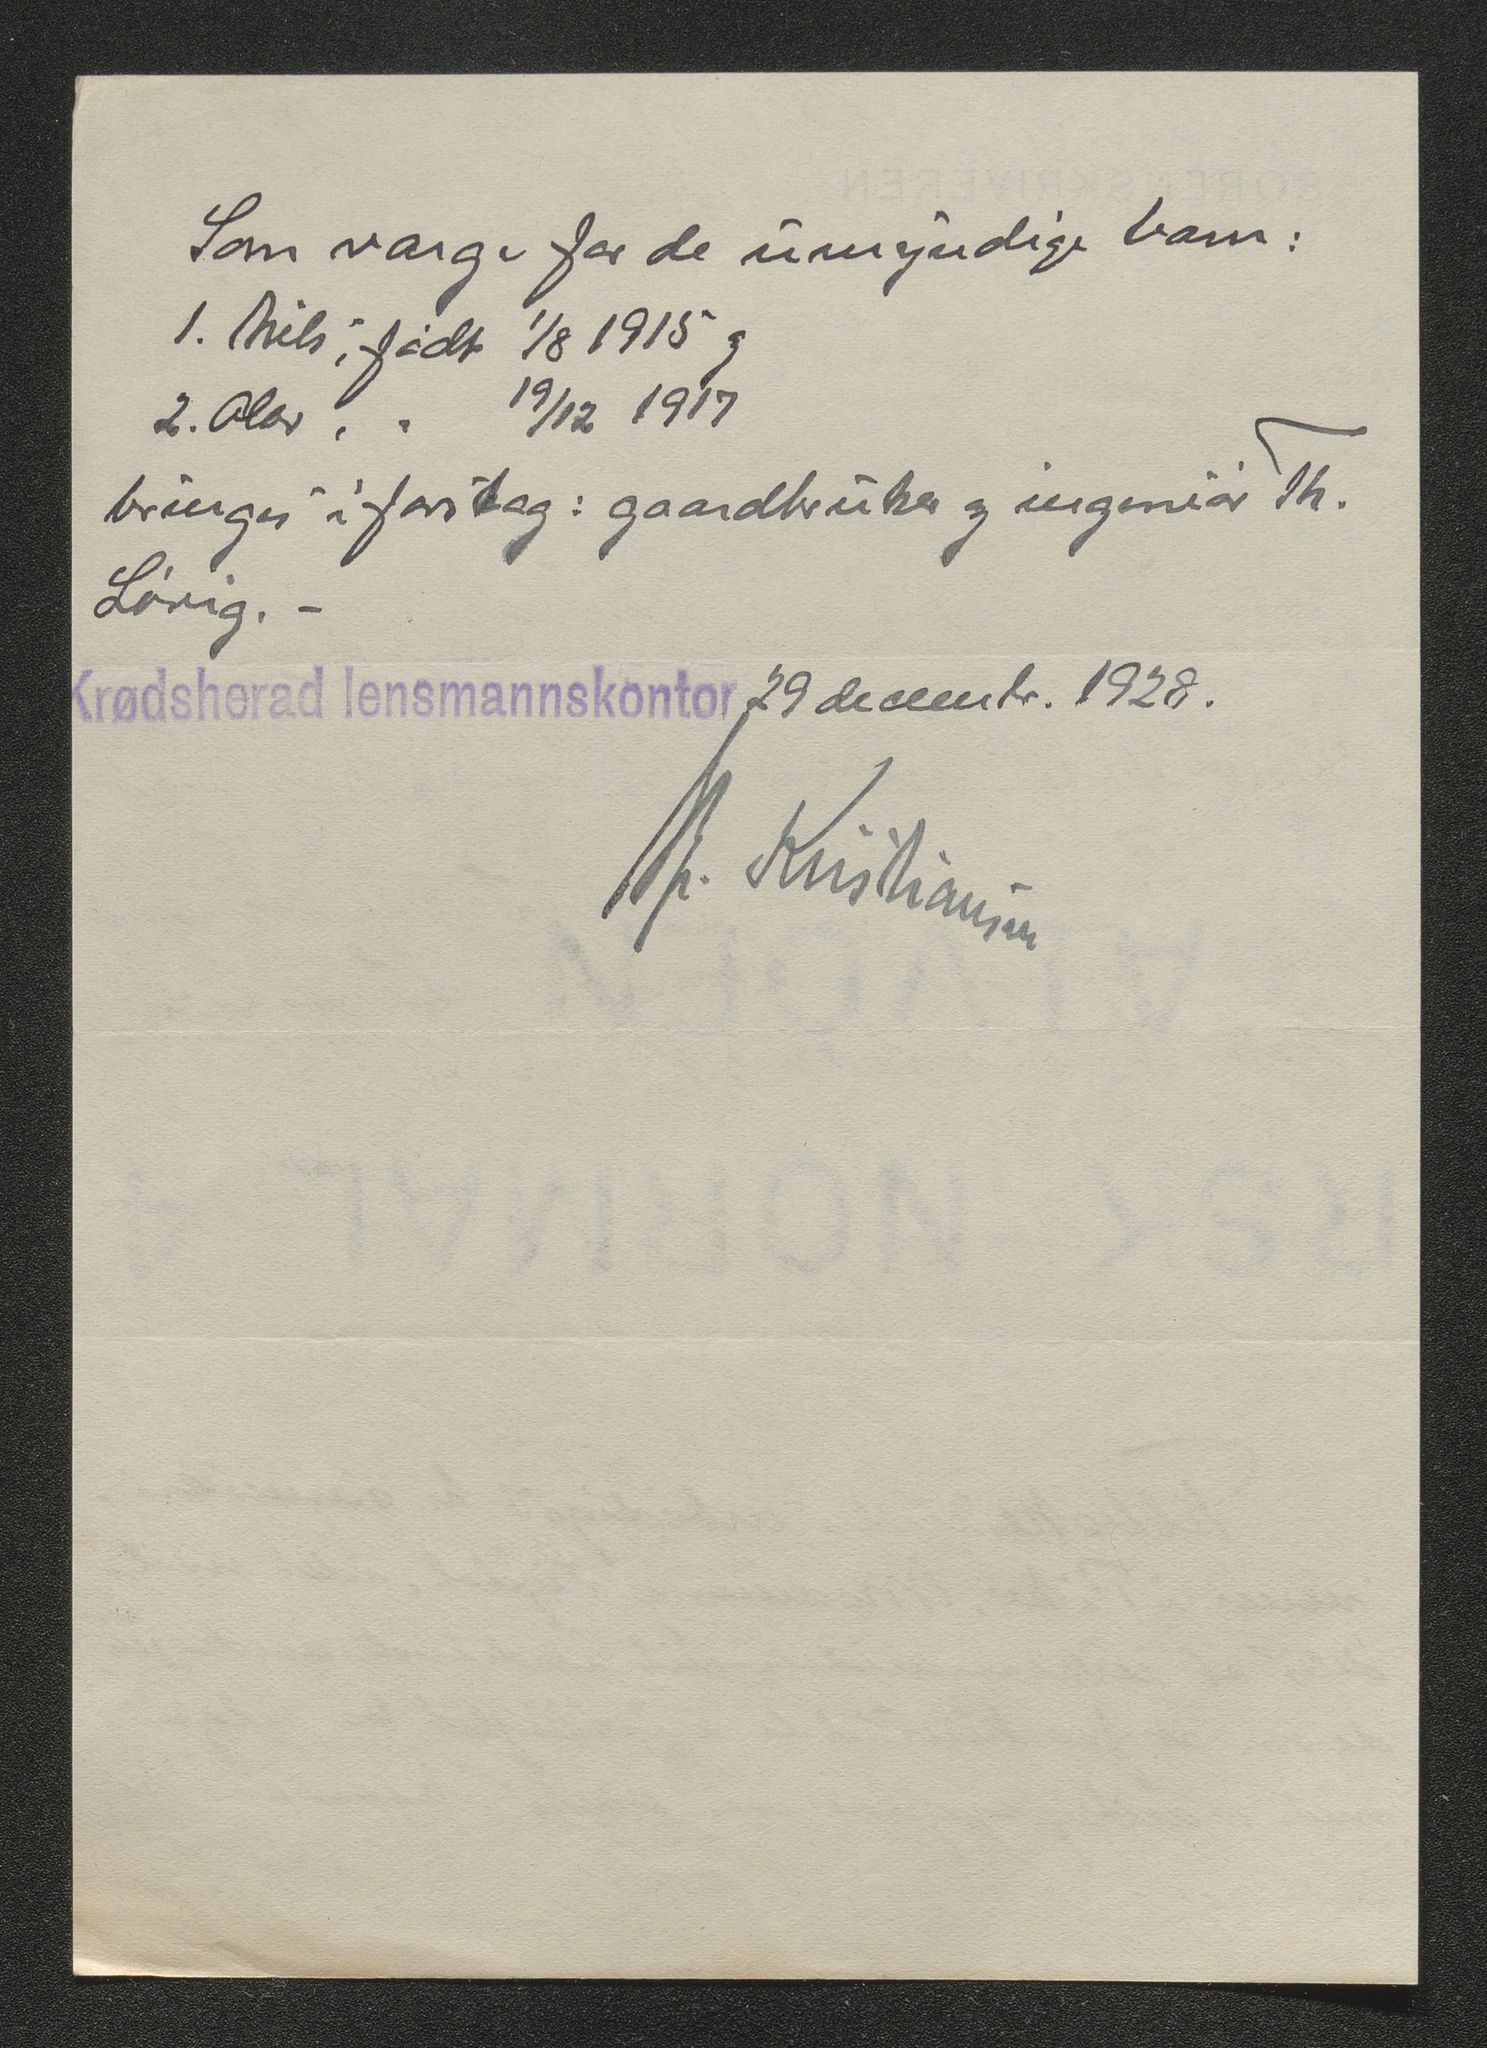 Som værge for de umyndige barn:
1. Nils, født 1/8 1915 og
2. Olav, " 19/12 1917
bringes i forslag: gaardbruker og ingeniør Th.
Løvig. -
Krødsherad lensmannskontor 29 decembr. 1928.
Kristiansen